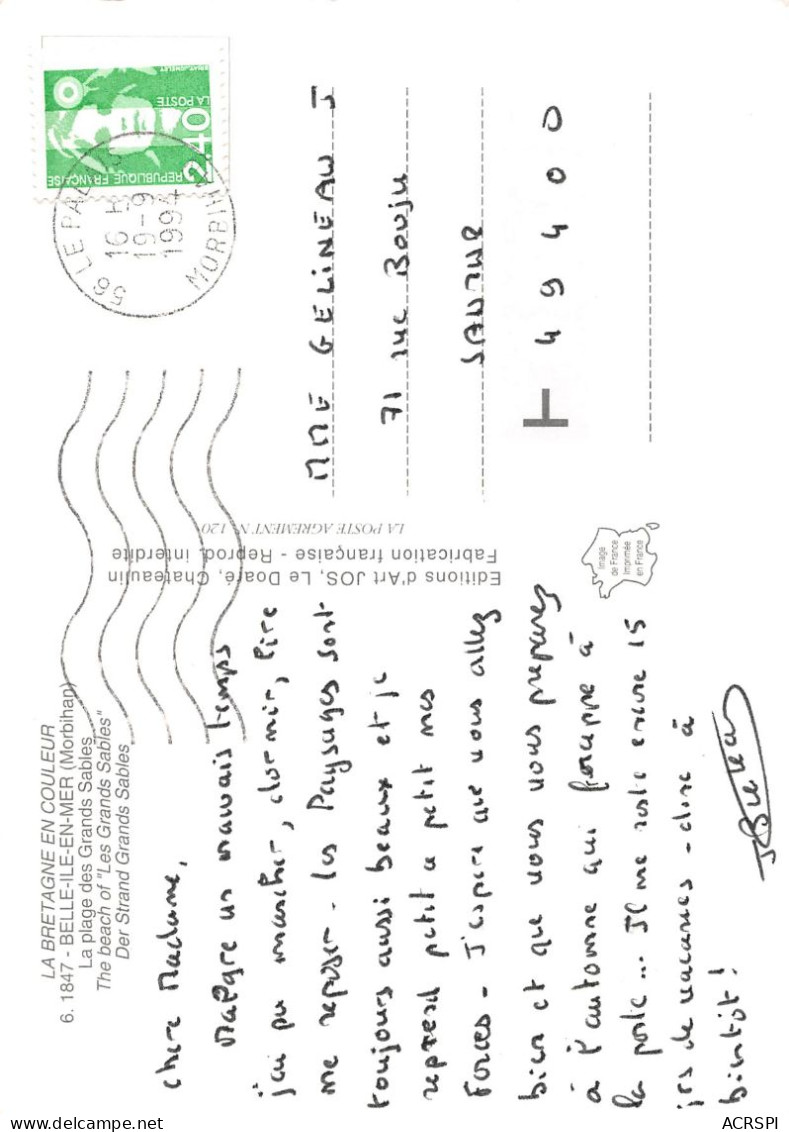 LA BRETAGNE EN COULEUR
6. 1847 - BELLE-ILE-EN-MER (Morbihan)
La plage des Grands Sables
The beach of "Les Grands Sables"
Der Strand Grands Sables
Chère Madame,
Malgré un mauvais temps
j'ai pu marcher, dormir, lire
me reposer - les Paysages sont
toujours aussi beaux et je
reprend petit a petit mes
forces - J'espère que vous allez
bien et que vous vous préparez
à l'automne qui frappe à
la porte... Il me reste encore 15
jrs de vacances - donc à
bientôt!
Editions d'Art JOS, Le Doaré, Chateaulin
Fabrication française - Reprod. interdite
LA POSTE AGREMENT N° 120
Image
de France
Imprimée
en France
REPUBLIQUE FRANÇAISE
2,40
LA POSTE
BRIAT-JUMELET
56 LE PALAIS
16 H
19-9
1994
MORBIHAN
MME GELINEAU J
71 rue Bouju
SAUMUR
49400
ACRSPI